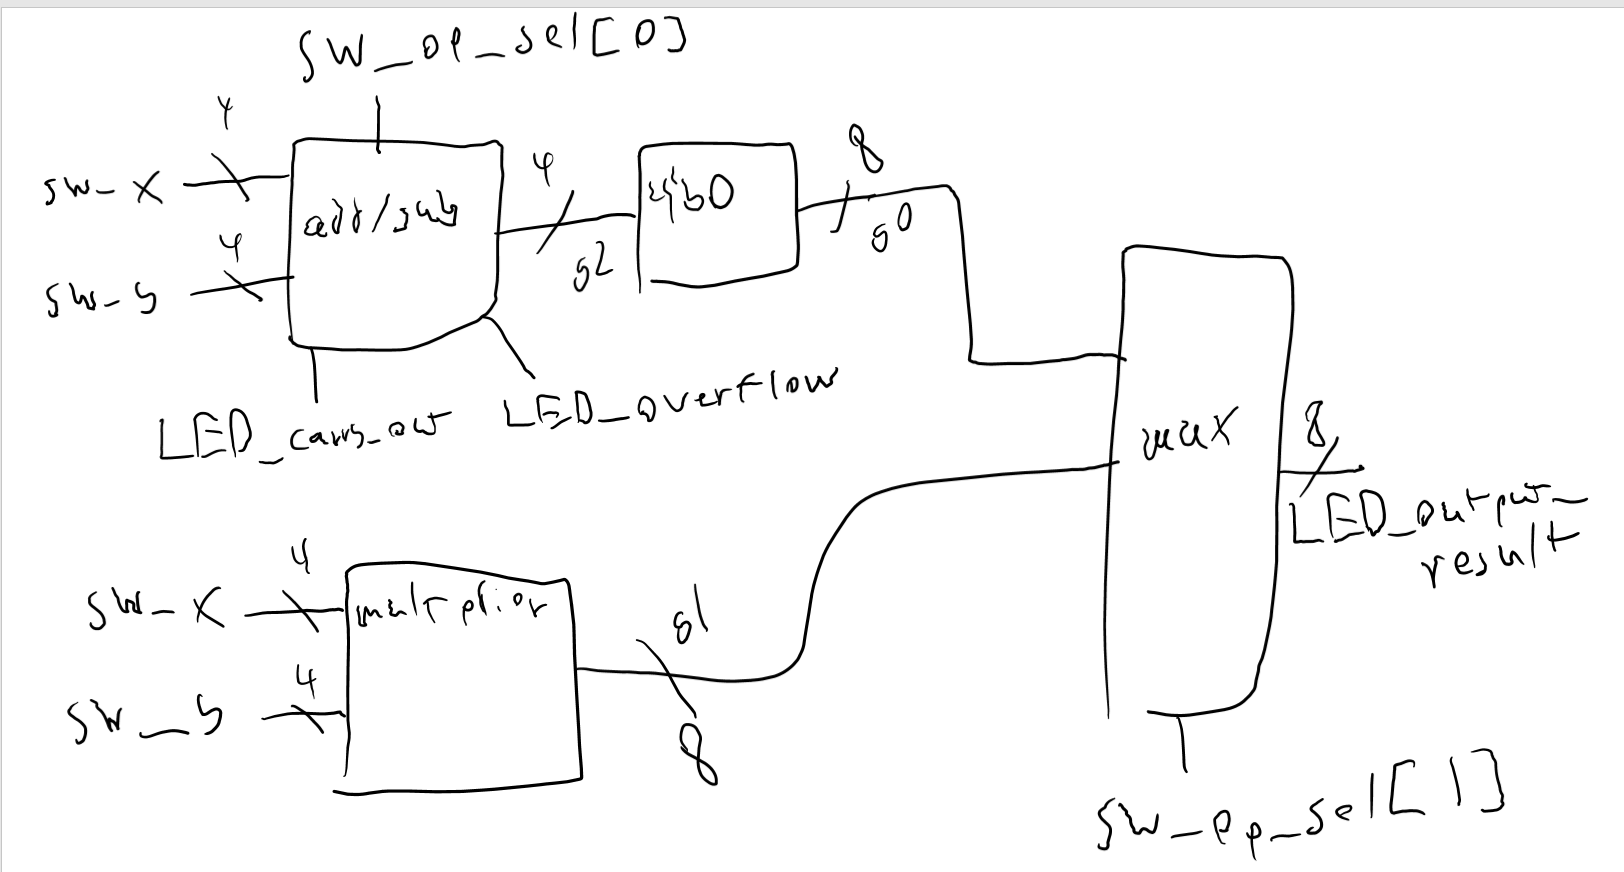 SW_op_sel[0]
4
SW_X
add/sub
4
SW_y
4
s2
4'b0
8
s0
LED_carry_out
LED_overflow
mux
8
LED_output_
result
4
SW_X
multiplior
4
SW_y
s1
8
SW_op_sel[1]